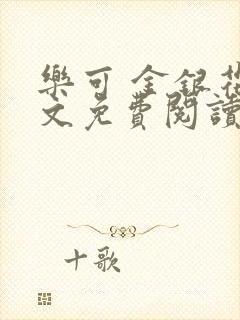 樂可 金銀花
文免費閱讀
十歌